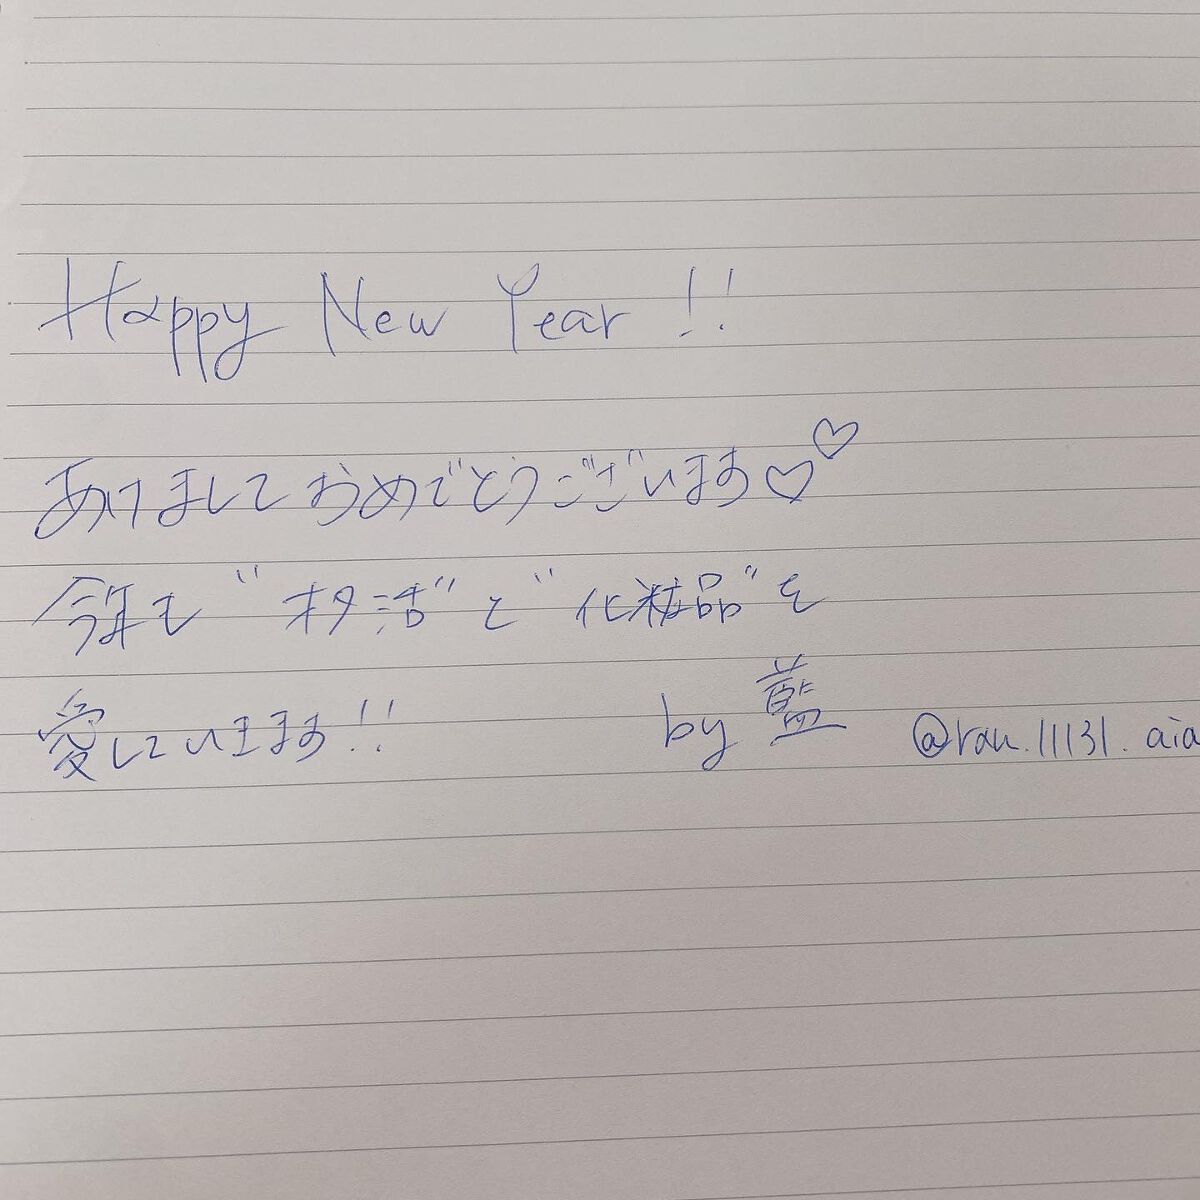 Happy New Year !!
あけましておめでとうございます♡♡
今年も"オタ活"と"化粧品"を
愛していきます!! by 藍 @ran.11131.aia